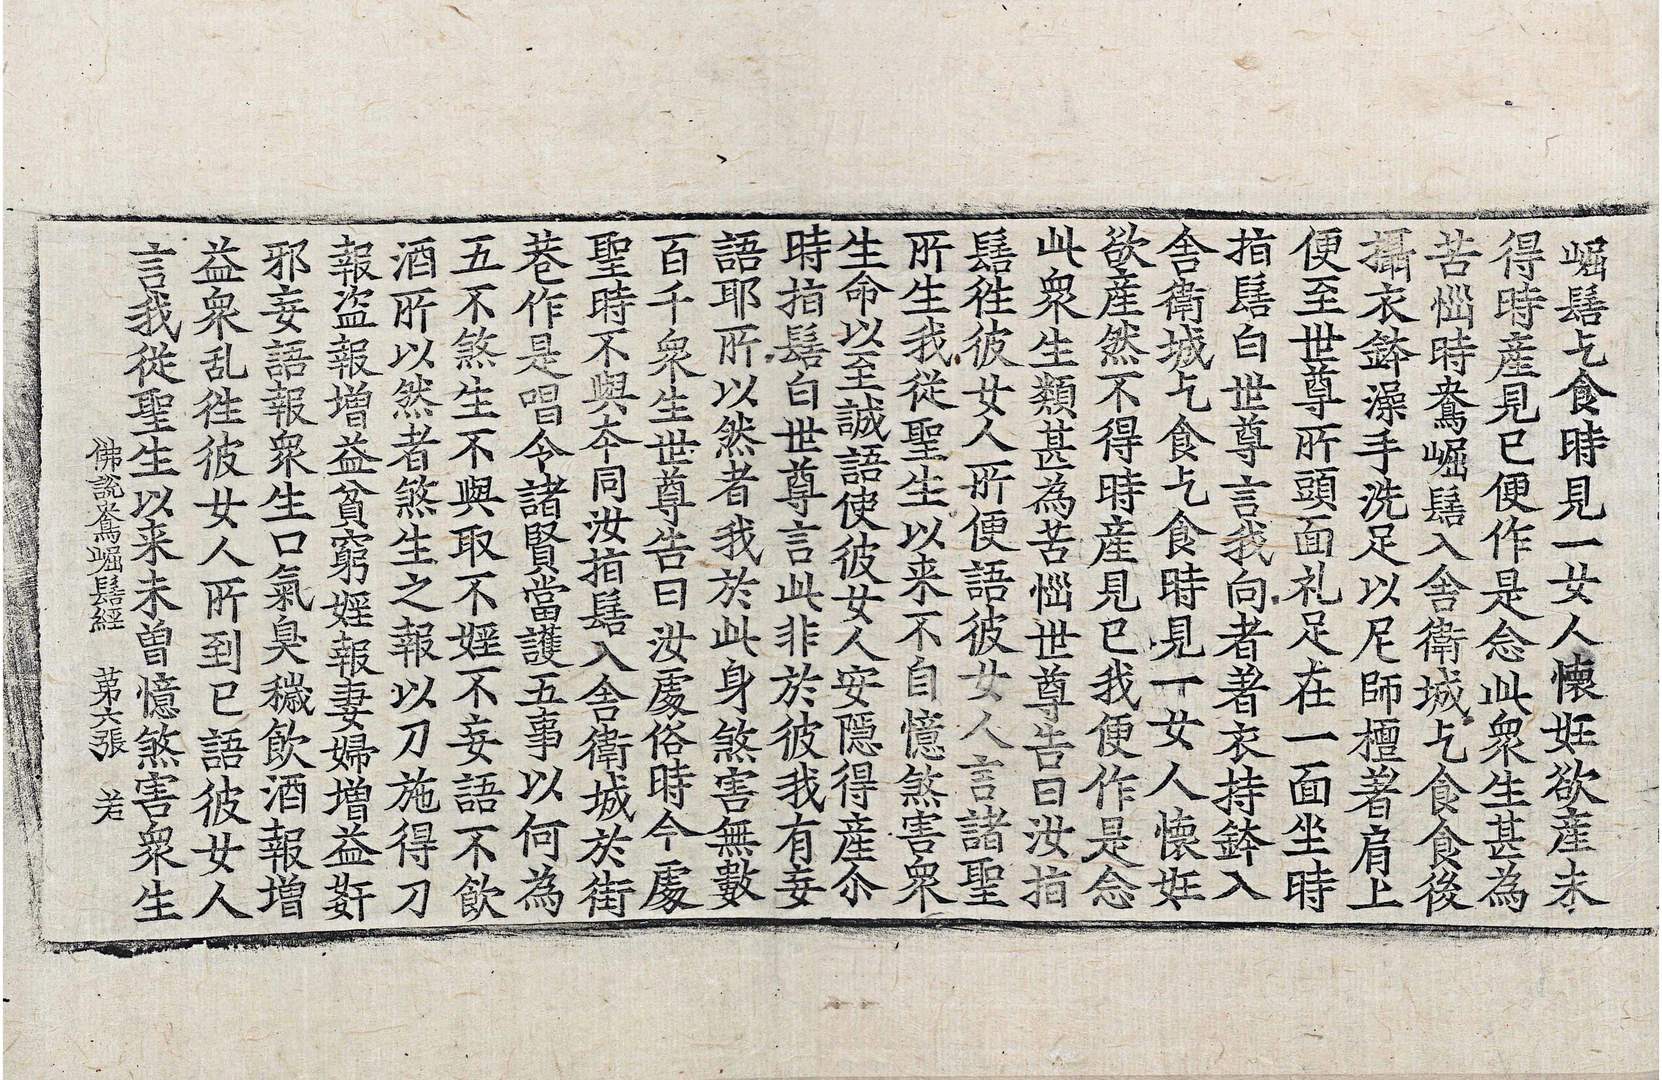 崛髻乞食時見一女人懷妊欲產未
得時產見已便作是念此衆生甚爲
苦惱時鴦崛髻入舍衛城乞食食後
攝衣鉢澡手洗足以尼師檀著肩上
便至世尊所頭面礼足在一面坐時
指髻白世尊言我向者著衣持鉢入
舍衛城乞食乞食時見一女人懷妊
欲產然不得時產見已我便作是念
此衆生類甚爲苦惱世尊告曰汝指
髻往彼女人所便語彼女人言諸聖
所生我從聖生以来不自憶煞害衆
生命以至誠語使彼女人安隱得產尒
時指髻白世尊言此非於彼我有妄
語耶所以然者我於此身煞害無數
百千衆生世尊告曰汝處俗時今處
聖時不與夲同汝指髻入舍衛城於街
巷作是唱令諸賢當護五事以何爲
五不煞生不與取不婬不妄語不飲
酒所以然者煞生之報以刀施得刀
報盜報增益貧窮婬報妻婦增益姧
邪妄語報衆生口氣臭穢飲酒報增
益衆乱往彼女人所到已語彼女人
言我從聖生以来未曽憶煞害衆生
佛說鴦崛髻經 第六張 若